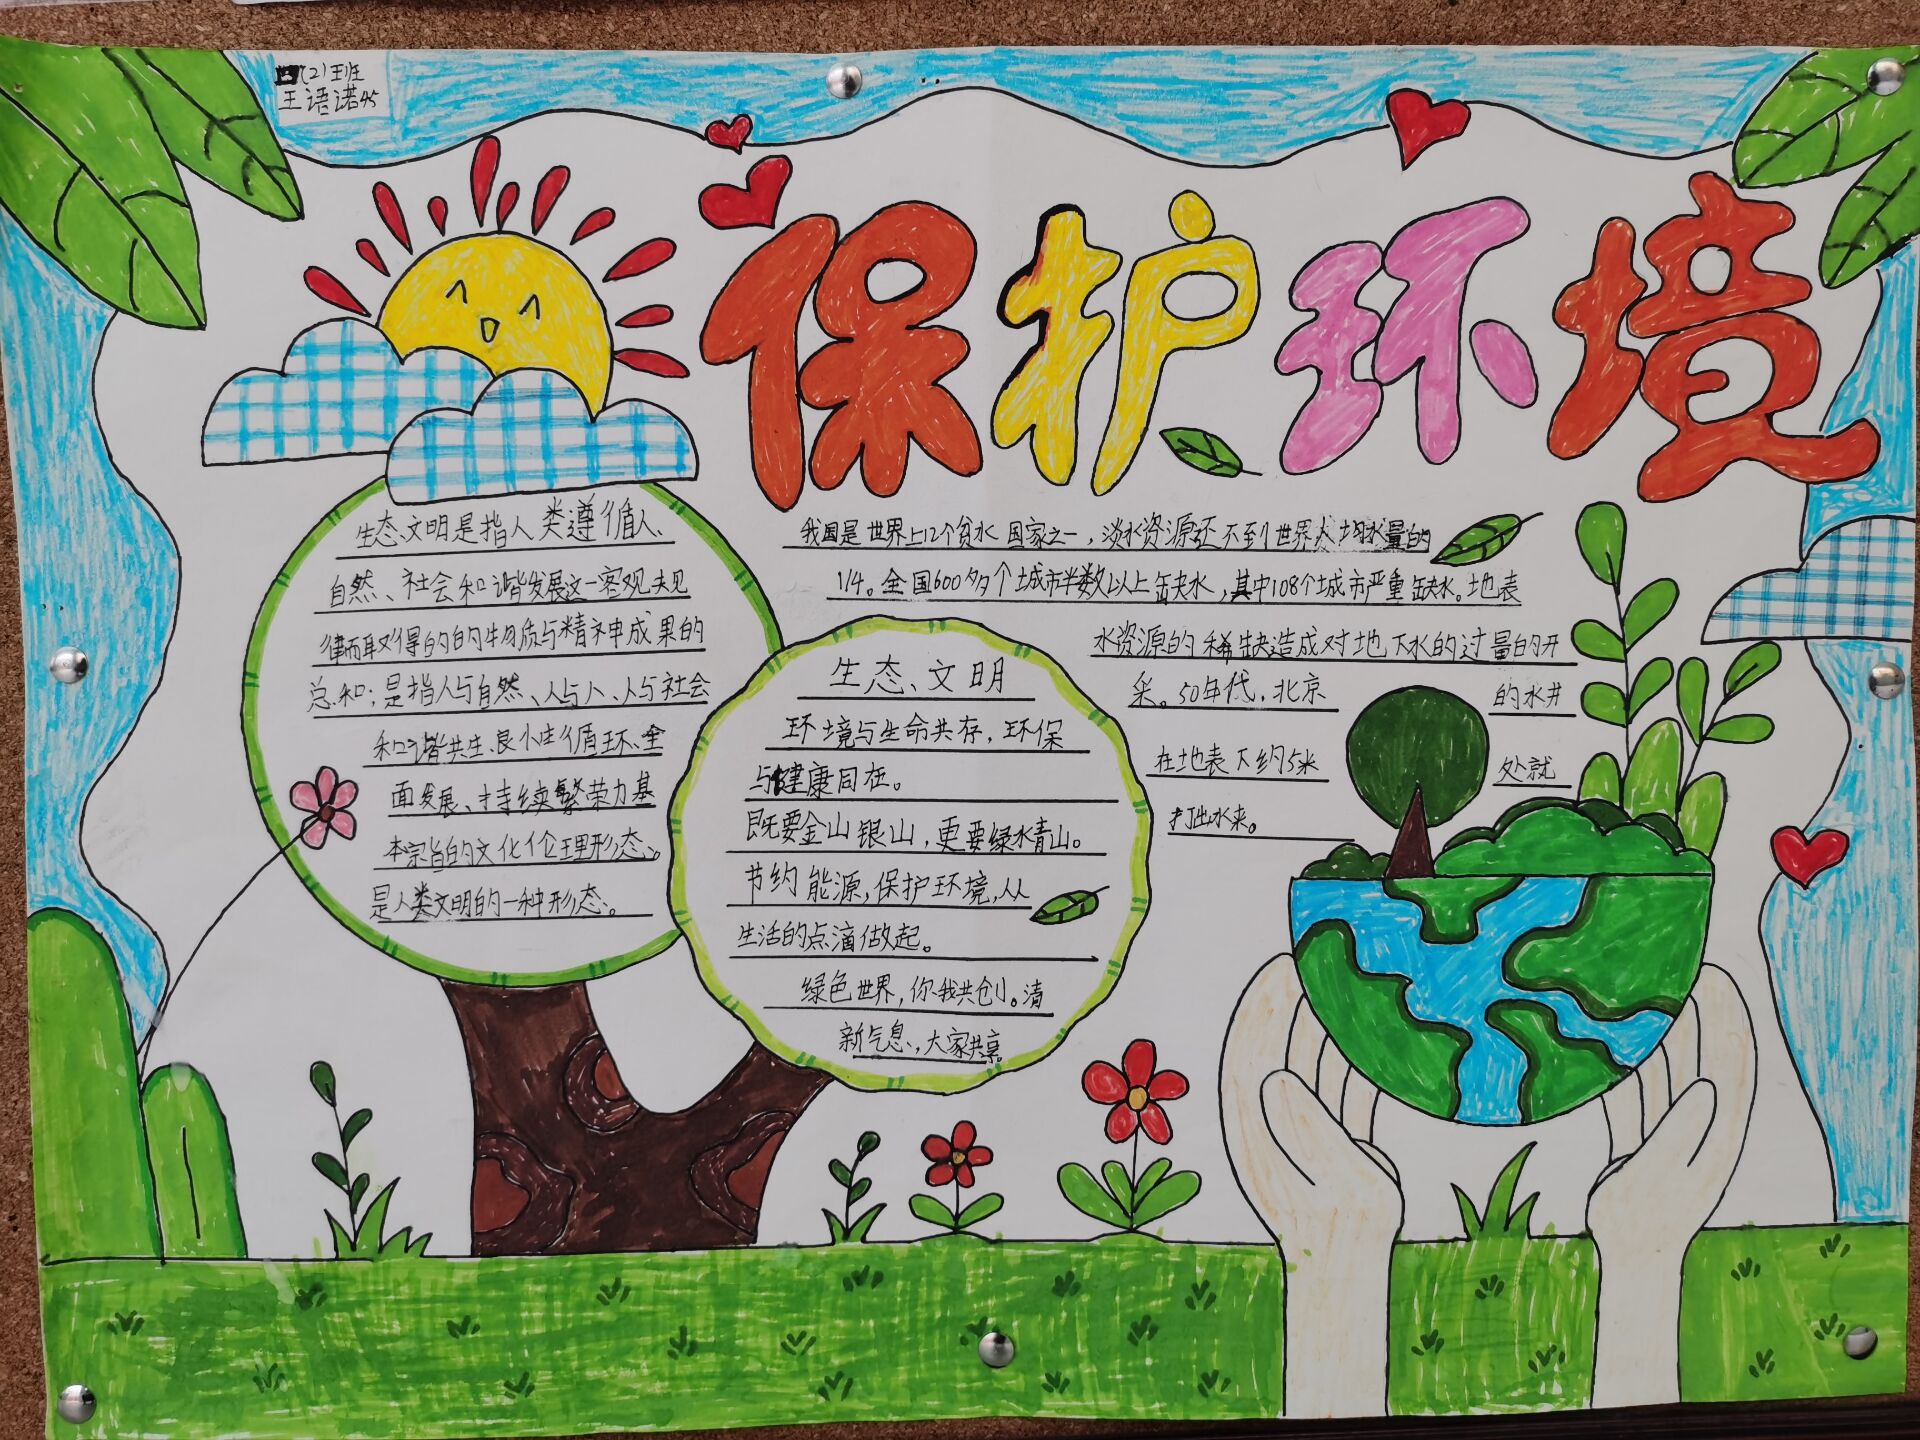 四(2)班
王语诺45
保护环境
生态文明是指人类遵循人、
自然、社会和谐发展这一客观规
律而取得的的物质与精神成果的
总和；是指人与自然、人与人、人与社会
和谐共生、良性循环、全
面发展、持续繁荣为基
本宗旨的文化伦理形态。
是人类文明的一种形态。
生态文明
环境与生命共存，环保
与健康同在。
既要金山银山，更要绿水青山。
节约能源，保护环境，从
生活的点滴做起。
绿色世界，你我共创。清
新气息，大家共享。
我国是世界上12个贫水国家之一，淡水资源还不到世界人均水量的
1/4。全国600多个城市半数以上缺水，其中108个城市严重缺水。地表
水资源的稀缺造成对地下水的过量的开
采。50年代，北京的水井
在地表下约5米处就
打出水来。